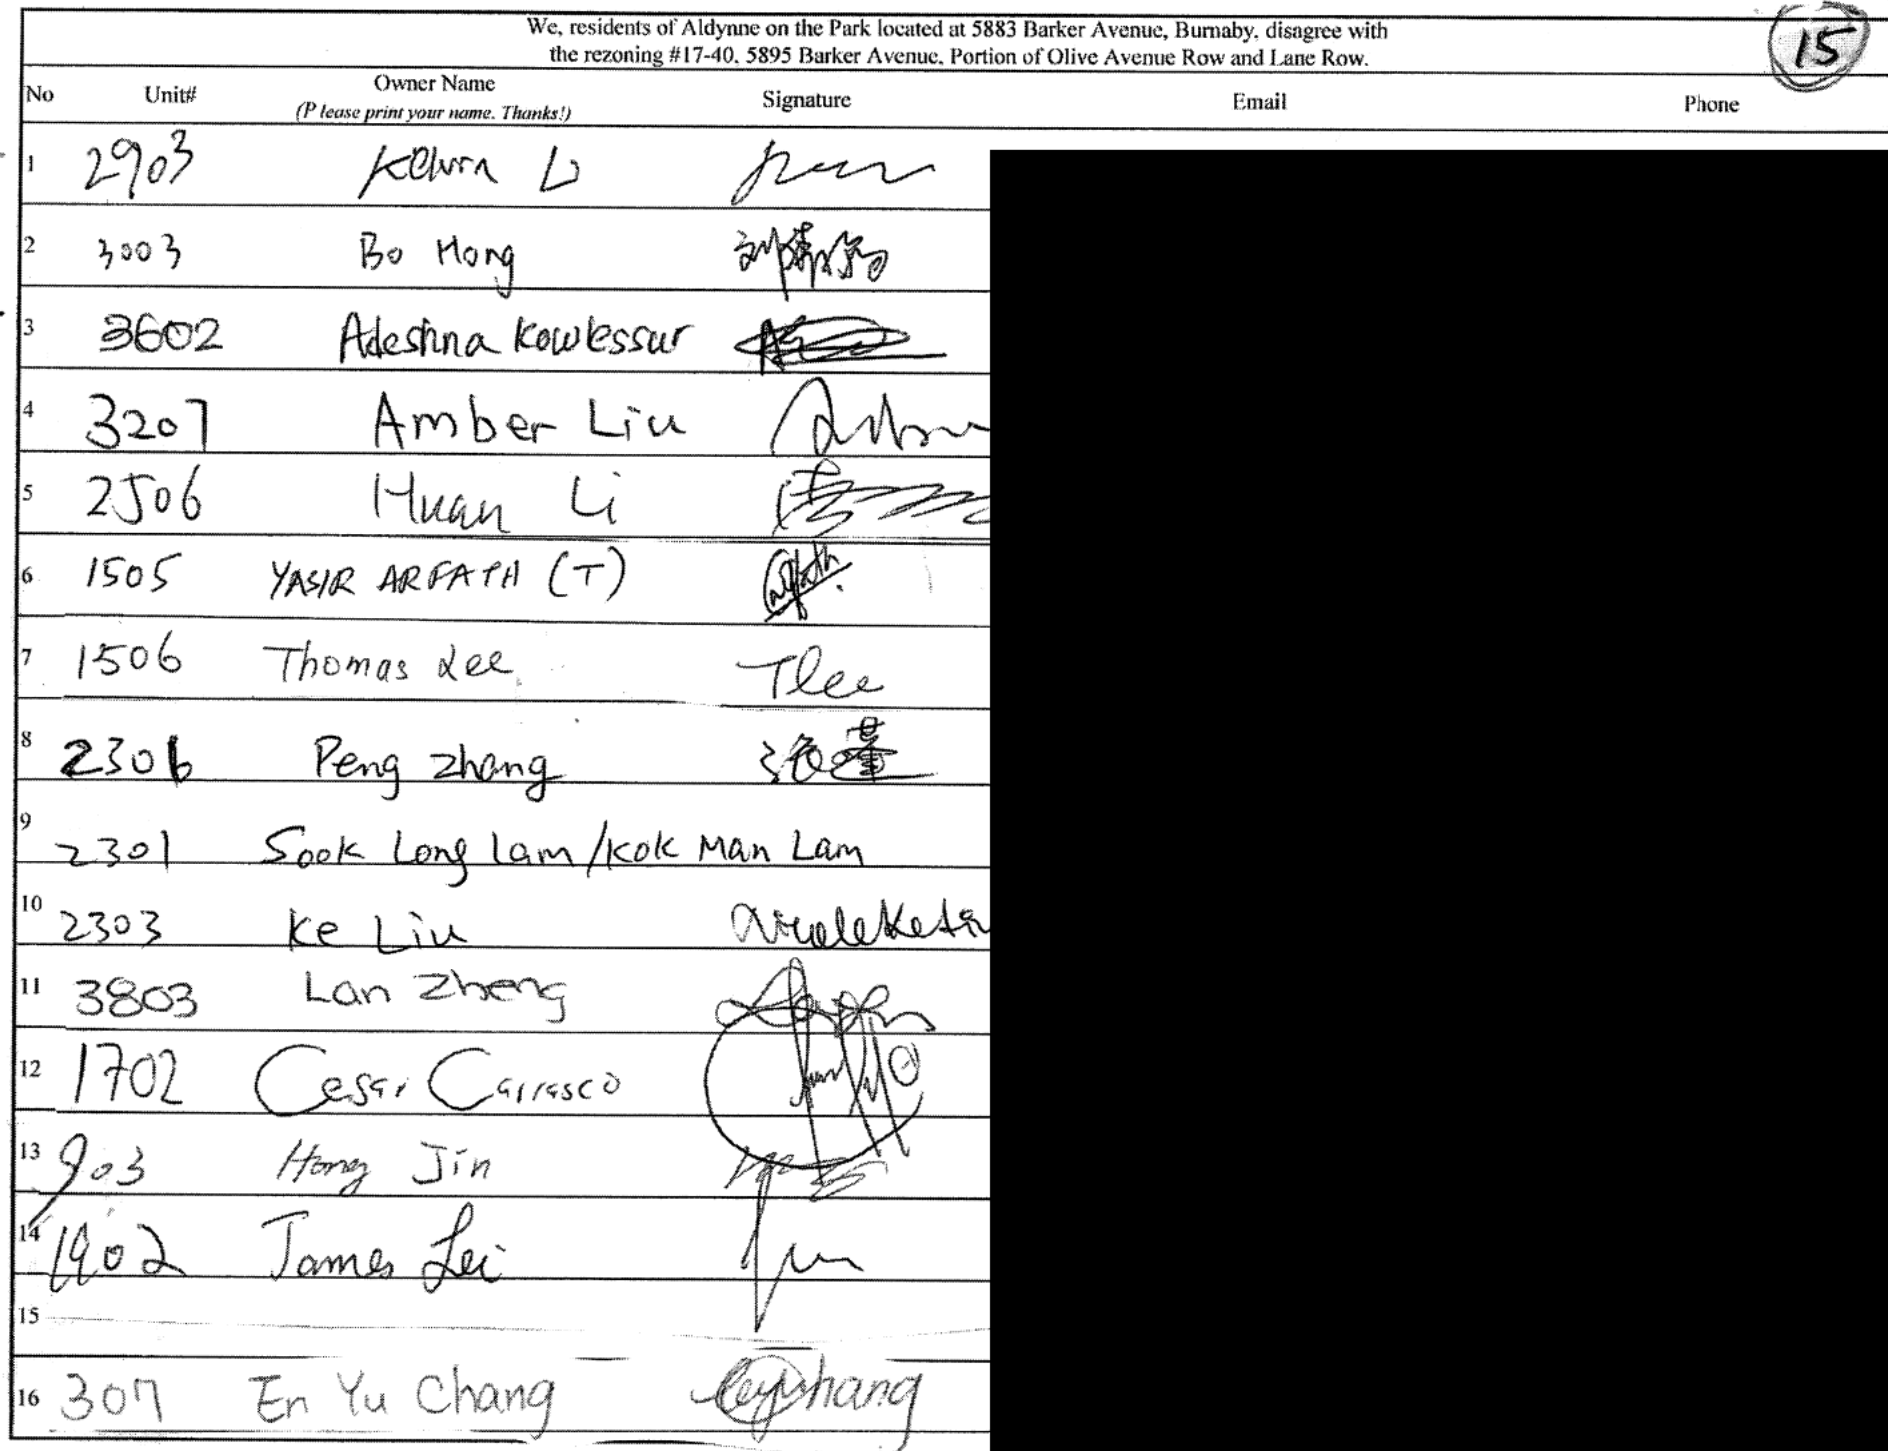 We, residents of Aldynne on the Park located at 5883 Barker Avenue, Burnaby, disagree with
the rezoning #17-40, 5895 Barker Avenue, Portion of Olive Avenue Row and Lane Row.
15
No Unit# Owner Name Signature Email Phone
(P lease print your name. Thanks!)
1 2903 Kelvin Li
2 3003 Bo Hong
3 3602 Adeshna Kowlessur
4 3207 Amber Liu
5 2506 Huan Li
6 1505 YASIR ARFATH (T)
7 1506 Thomas Lee TLee
8 2306 Peng zhang
9 2301 Sook Long Lam/Kok Man Lam
10 2303 Ke Liu
11 3803 Lan Zheng
12 1702 Cesar Carrasco
13 903 Hong Jin
14 1902 James Lei
15
16 307 En Yu Chang